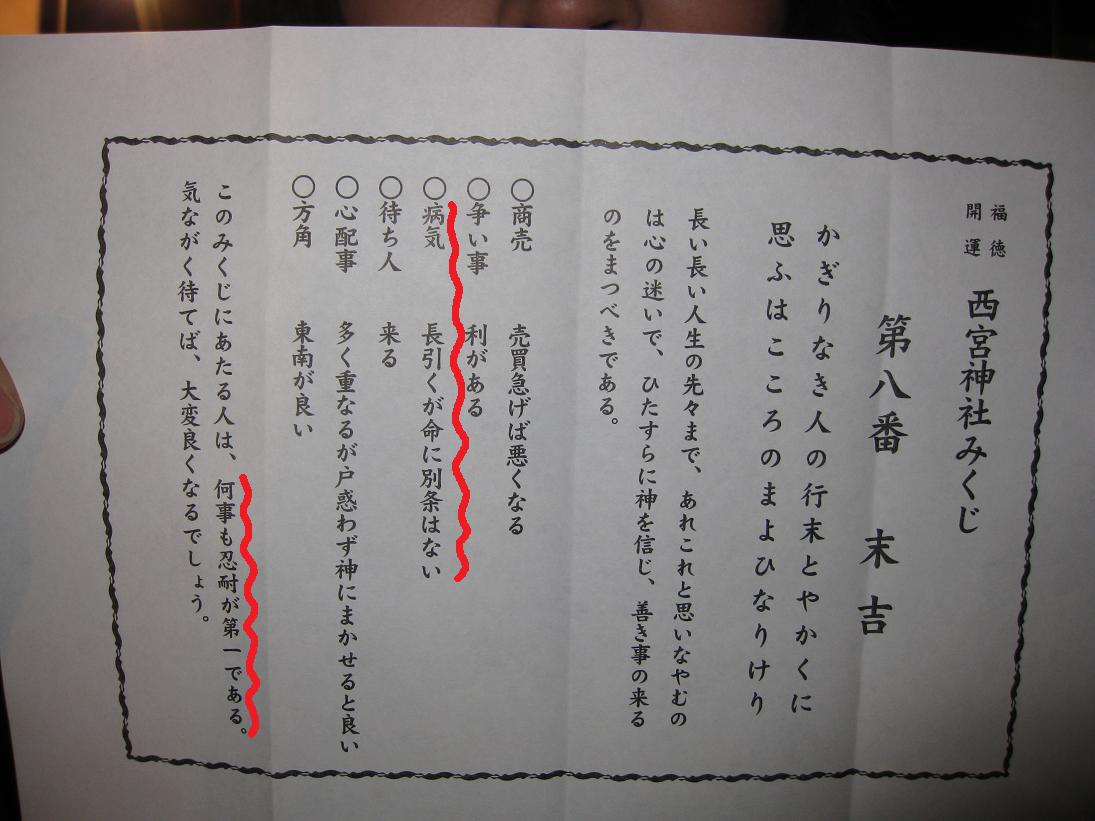 福徳
開運
西宮神社みくじ
第八番 末吉
かぎりなき人の行末とやかくに
思ふはこころのまよひなりけり
長い長い人生の先々まで、あれこれと思いなやむの
は心の迷いで、ひたすらに神を信じ、善き事の来る
のをまつべきである。
○商売 売買急げば悪くなる
○争い事 利がある
○病気 長引くが命に別条はない
○待ち人 来る
○心配事 多く重なるが戸惑わず神にまかせると良い
○方角 東南が良い
このみくじにあたる人は、何事も忍耐が第一である。
気ながく待てば、大変良くなるでしょう。